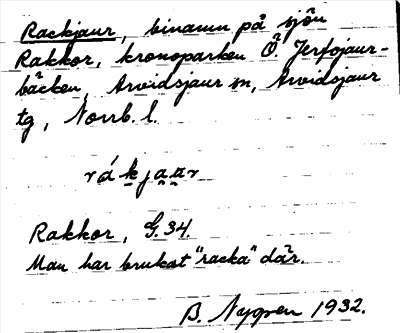 Rackjaur, binamn på sjön
Rakkor, kronoparken Ö. Jerfojaur-
bäcken, Arvidsjaur sn, Arvidsjaur
tg, Norrb. l.
rákja̤a̤r
Rakkor, G.34.
Man har brukat "racka" där.
B. Nygren 1932.